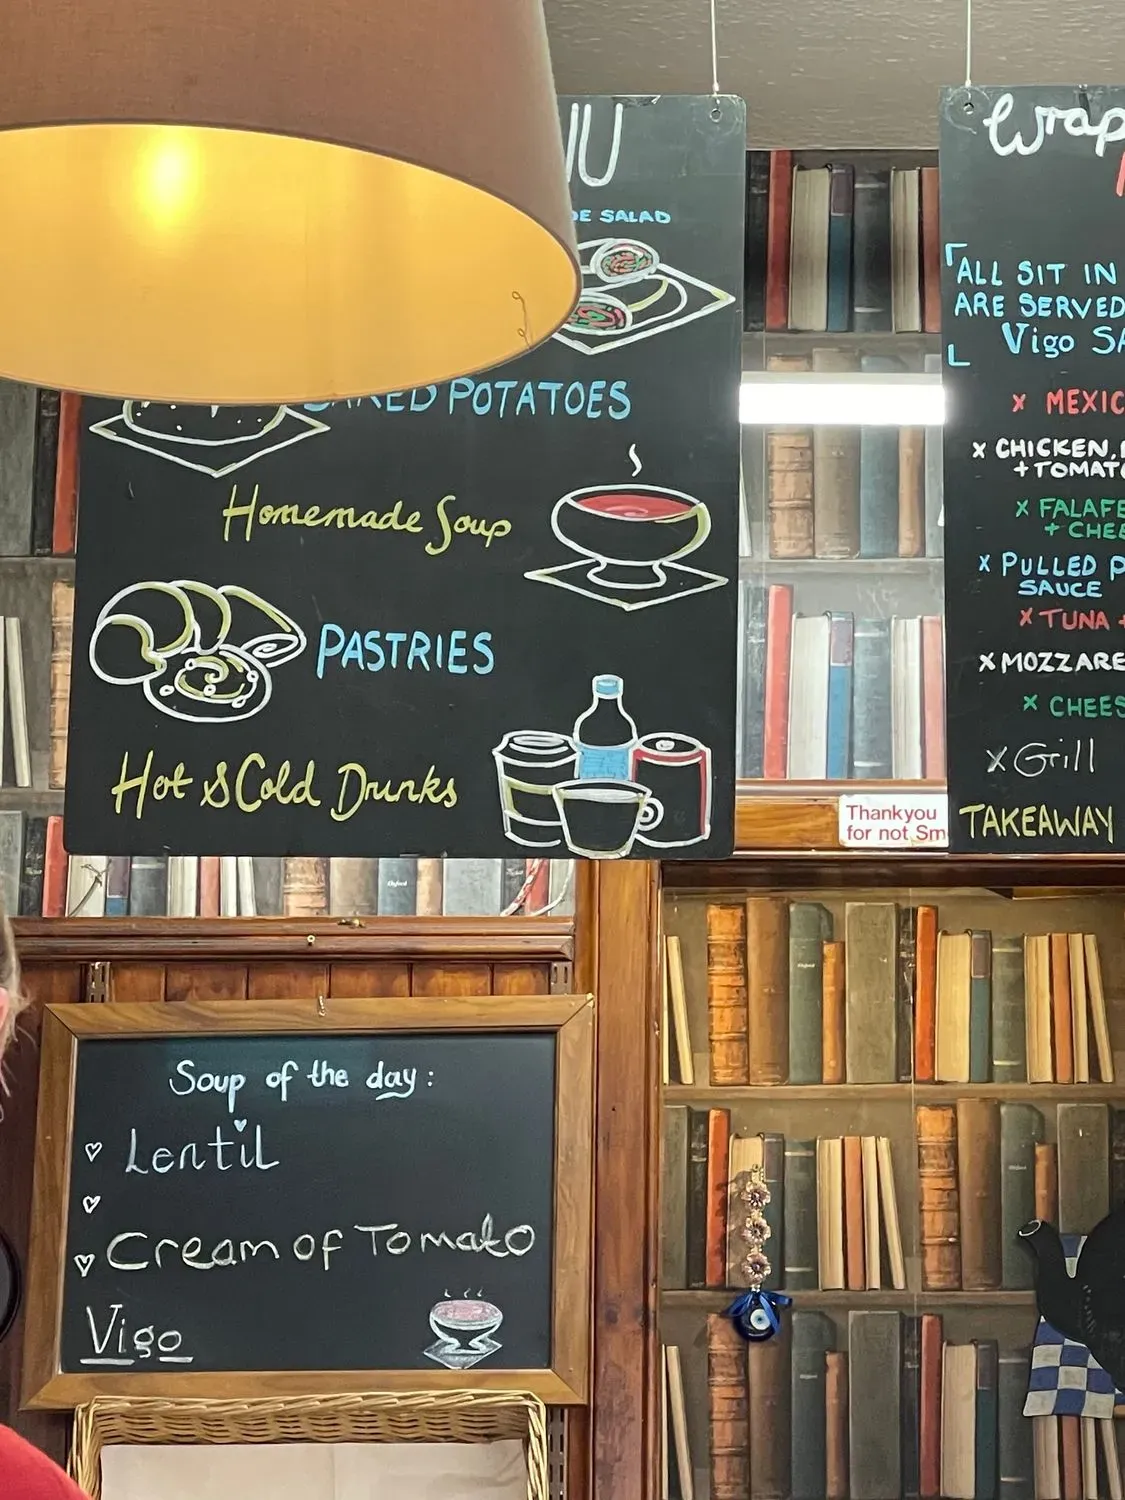 NU
DE SALAD
BAKED POTATOES
Homemade Soup
PASTRIES
Hot & Cold Drunks
Wrap
ALL SIT IN
ARE SERVED
Vigo SA
x MEXIC
x CHICKEN,
+ TOMATO
x FALAFE
+ CHEE
x PULLED P
SAUCE
x TUNA +
x MOZZARE
x CHEES
x Grill
TAKEAWAY
Thankyou
for not Sm
Soup of the day:
Lentil
Cream of Tomato
Vigo
Oxford